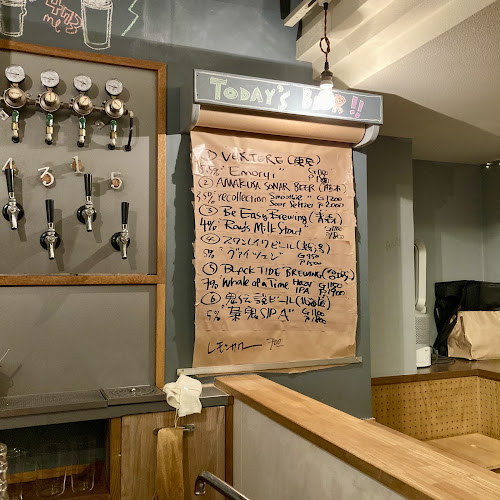 473 ml
TODAY'S BEER!!
① VERTERE (東京)
5.5% "Emoryi"
② AMAKUSA SONAR BEER (熊本)
4.5% "recollection Smoothie Sour Seltzer" G 1200 P 2000
③ Be Easy Brewing (青森)
4% "Roy's Milk Stout" G 1100
④ スワンレイクビール (新潟)
5% "ヴァイツェン" G 950 P 1500
⑤ BLACK TIDE BREWING (宮城)
7% Whale of a Time Hazy IPA G 1150 P 1900
⑥ 鬼伝説ビール (北海道)
5% "菜鬼SIPA" G 1100
レモンサワー 700
1 3 5